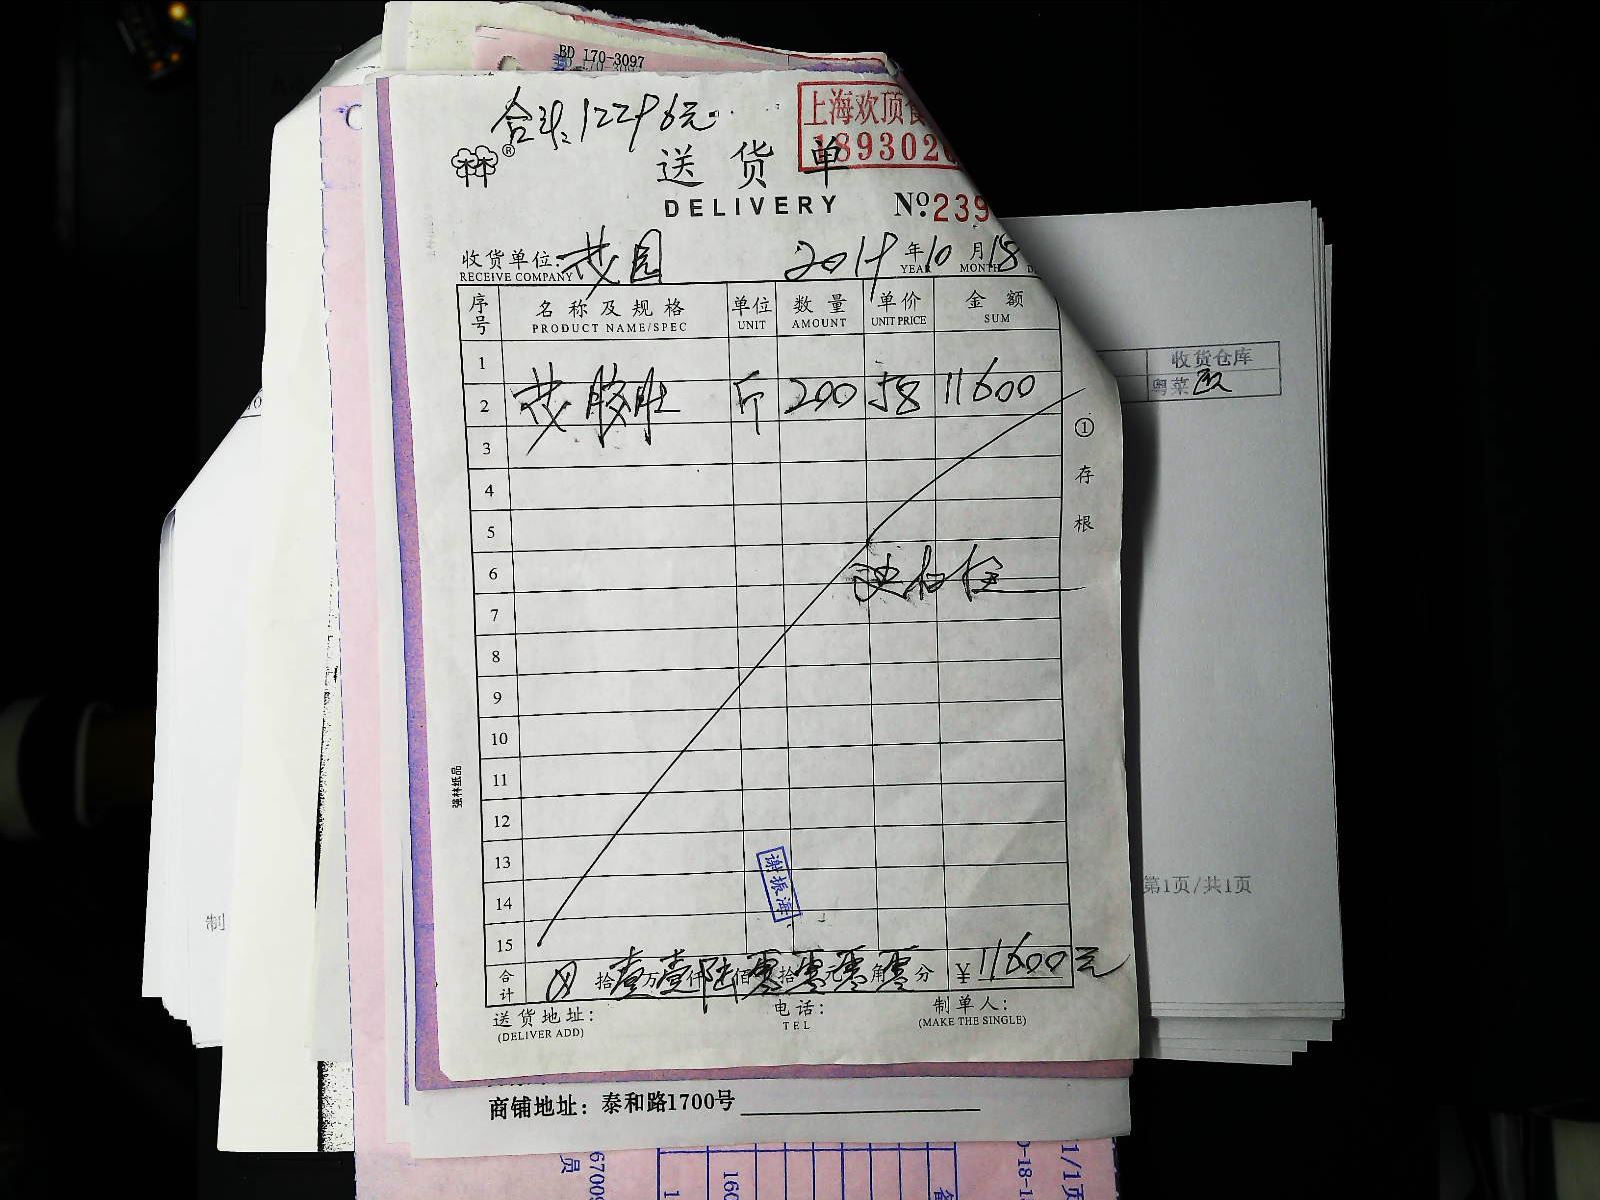 BD 170-3097
合计:12296元
上海欢顶食
1893020
林林®
送货单
DELIVERY
№239
收货单位:茂园 2019年10月18
RECEIVE COMPANY YEAR MONTH
序号 名称及规格 单位 数量 单价 金额
PRODUCT NAME/SPEC UNIT AMOUNT UNIT PRICE SUM
1
2 花胶肚 斤 200 58 11600
3
4
5
6
7
8
9
10
11
12
13
14
15
谢振海
合计 拾壹万壹仟陆佰零拾零元零角零分 ¥11600元
送货地址: 电话: 制单人:
(DELIVER ADD) TEL (MAKE THE SINGLE)
①存根
强林纸品
收货仓库
粤菜
第1页/共1页
制
商铺地址:泰和路1700号
员
67009
160
0-18-1
1/1页